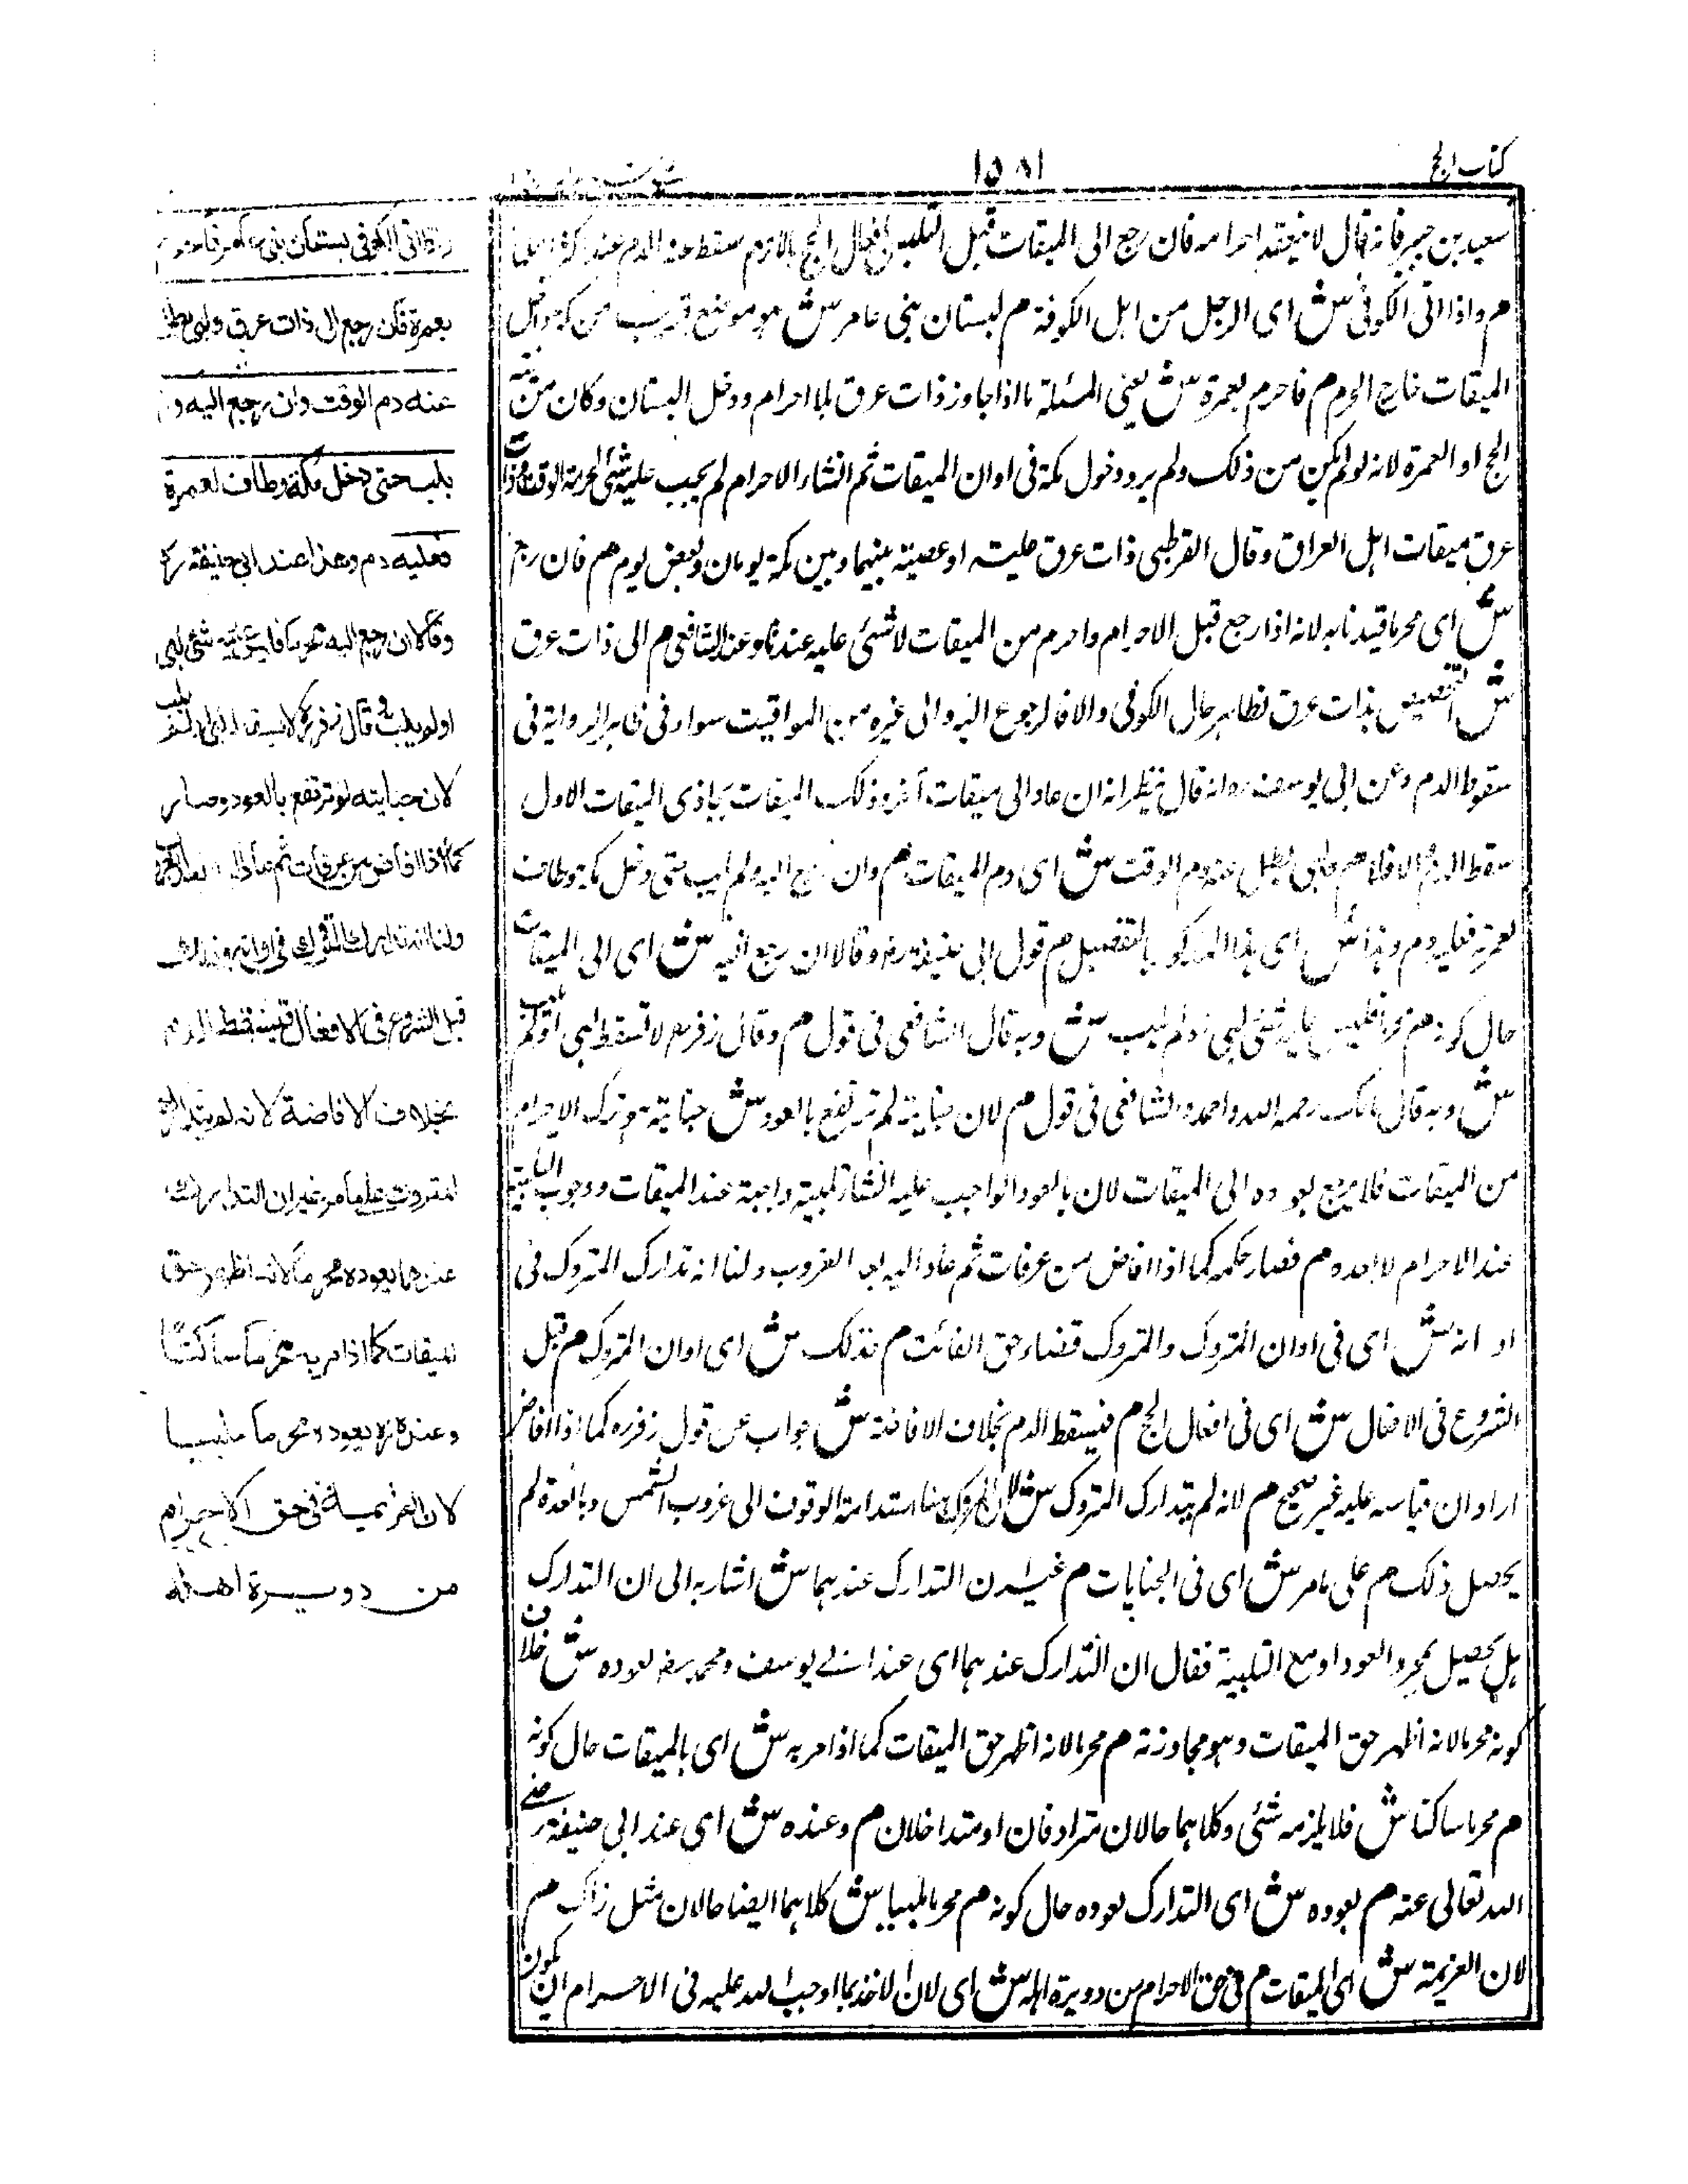 كتاب الحج
١٥٨١
سعيد بن جبير فانه قال لا ينعقد احرامه فان رجع الى الميقات قبل التلبس بافعال الحج سقط عنه الدم عند
م واذا اتى الكوفى ش اى الرجل من اهل الكوفة م بستان بنى عامر ش هو موضع قريب من مكة داخل
الميقات خارج الحرم م فاحرم بعمرة ش يعنى المسئلة ما اذا جاوز ذات عرق بلا احرام ودخل البستان وكان من نيته
الحج او العمرة لانه لو لم يكن من ذلك ولم يرد دخول مكة فى اوان الميقات ثم انشاء الاحرام لم يجب عليه شئ لحرمة الوقت وذات
عرق ميقات اهل العراق وقال القرطبى ذات عرق بينها وبين مكة يومان وبعض يوم م فان رجع
ش اى محرما قيدنا به لانه اذا رجع قبل الاحرام واحرم من الميقات لا شئ عليه عندنا وعند الشافعى م الى ذات عرق
ش التخصيص بذات عرق لظاهر حال الكوفى والا فالرجوع اليه والى غيره من المواقيت سواء فى ظاهر الرواية فى
سقوط الدم وعن ابى يوسف ره انه قال ينظر انه ان عاد الى ميقات آخر وذلك الميقات يحاذى الميقات الاول
سقط الدم والا فلا م ولبى بطل عنه دم الوقت ش اى دم الميقات م وان رجع اليه ولم يلب حتى دخل مكة وطاف
لعمرته فعليه دم وهذا ش اى هذا المذكور بالتفصيل م قول ابى حنيفة ره وقالا ان رجع اليه ش اى الى الميقات
حال كونه م محرما فليس عليه شئ لبى او لم يلب ش وبه قال الشافعى فى قول م وقال زفر ره لا تسقط لبى او لم يلب
ش وبه قال مالك رحمه الله واحمد والشافعى فى قول م لان جنايته لم ترتفع بالعود ش جنايته هو ترك الاحرام
من الميقات فلا يرتفع بعوده الى الميقات لان بالعود الواجب عليه انشاء تلبية واجبة عند الميقات ووجوب التلبية
عند الاحرام لا بعده م فصار حكمه كما اذا افاض من عرفات ثم عاد اليه بعد الغروب ولنا انه تدارك المتروك فى
اوانه ش اى فى اوان المتروك والمتروك قضاء حق الفائت م فذلك ش اى اوان المتروك م قبل
الشروع فى الافعال ش اى فى افعال الحج م فيسقط الدم بخلاف الافاضة ش جواب عن قول زفر ره كما اذا افاض
اراد ان قياسه عليه غير صحيح م لانه لم يتدارك المتروك ش لان المتروك هنا استدامة الوقوف الى غروب الشمس وبالعود لم
يحصل ذلك م على ما مر ش اى فى الجنايات م غير ان التدارك عندهما ش اشار به الى ان التدارك
هل يحصل بمجرد العود او مع التلبية فقال ان التدارك عندهما اى عند ابى يوسف ومحمد بعوده ش خلاف
كونه محرما لانه اظهر حق الميقات وهو مجاوزته م محرما لانه اظهر حق الميقات كما اذا مر به ش اى بالميقات حال كونه
م محرما ساكتا ش فلا يلزمه شئ وكلاهما حالان مترادفان او متداخلان م وعنده ش اى عند ابى حنيفة رضى
الله تعالى عنه م بعوده ش اى التدارك بعوده حال كونه م محرما ملبيا ش كلاهما ايضا حالان مثل ذاك م
لان العزيمة ش اى الميقات م فى حق الاحرام من دويرة اهله ش اى لان الاخذ بما اوجب الله عليه فى الاحرام ان يكون
الكوفى بستان بنى عامر فاحرم
بعمرة فان رجع الى ذات عرق ولبى بطل
عنه دم الوقت وان رجع اليه ولم
يلب حتى دخل مكة وطاف لعمرة
فعليه دم وهذا عند ابى حنيفة ره
وقالا ان رجع اليه محرما فليس عليه شئ لبى
او لم يلب وقال زفر لا يسقط لبى او لم يلب
لان جنايته لم ترتفع بالعود وصار
كما اذا افاض من عرفات ثم عاد اليه بعد الغروب
ولنا انه تدارك المتروك فى اوانه وذلك
قبل الشروع فى الافعال فيسقط الدم
بخلاف الافاضة لانه لم يتدارك
المتروك على ما مر غير ان التدارك
عندهما بعوده محرما لانه اظهر حق
الميقات كما اذا مر به محرما ساكتا
وعنده ره بعوده محرما ملبيا
لان العزيمة فى حق الاحرام
من دويرة اهله